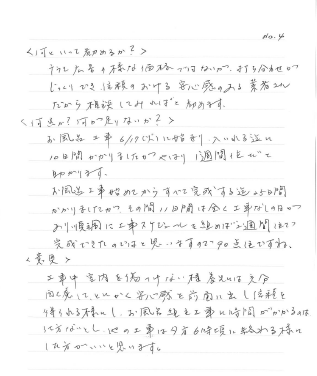 No. 4
<何といって勧めるか？>
チラシ広告の様な価格ではないが、打ち合せが
じっくりでき、信頼のおける安心感のある業者さん
だから相談してみればと勧めます。
<何点か？何が足りないか？>
お風呂工事 6/17(じ)に始まり、入いれる迄に
10日間かかりましたが やはり 1週間位だと
助かります。
お風呂工事始めてから すべて完成する迄25日間
かかりましたが、その間11日間は全く工事なしの日が
あり 順調に工事スケジュールを組めば2週間位で
完成できたのではと思いますので90点位ですね。
<意見>
工事中 室内を傷つけない様 養生には充分
配慮して、とにかく安心感を前面に出し信頼を
得られる様にし、お風呂組立工事に時間がかかるのは
仕方ないとし、他の工事は夕方6時頃に終わる様に
した方がいいと思います。